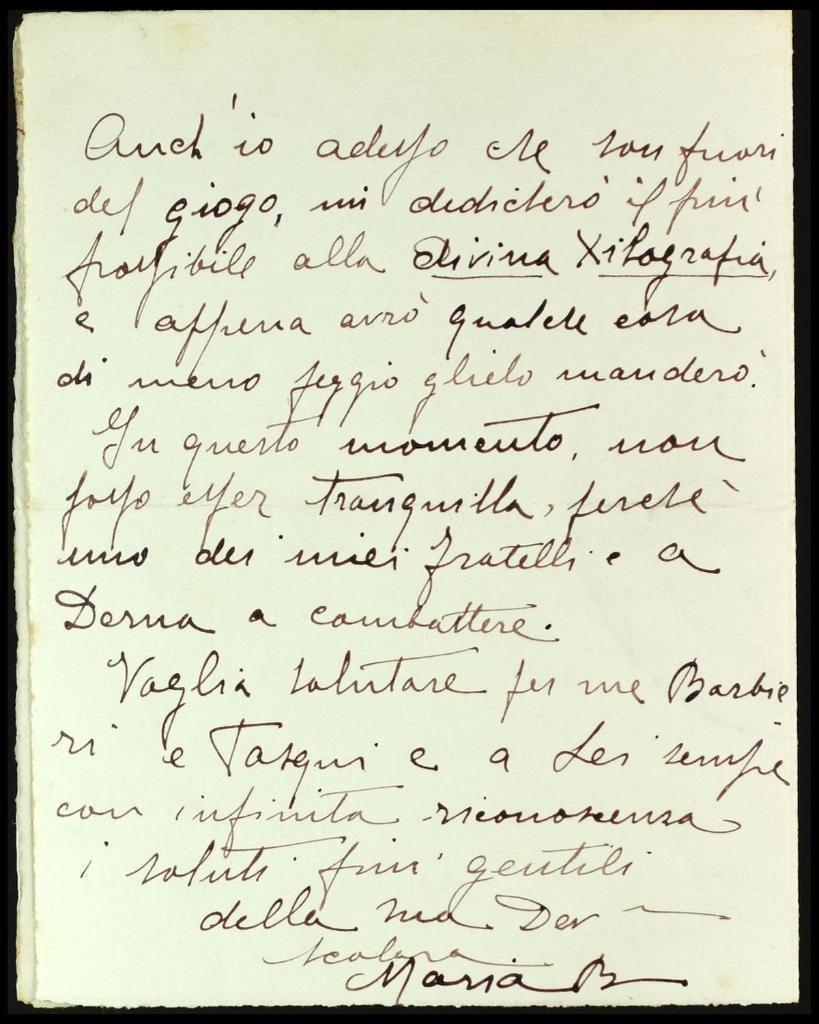 Anch'io adesso che son fuori
del giogo, mi dedicherò il più
possibile alla divina Xilografia,
e appena avrò qualche cosa
di meno peggio glielo manderò.
In questo momento, non
posso esser tranquilla, perchè
uno dei miei fratelli è a
Derna a combattere.
Voglia salutare per me Barbie
ri e e a Lei sempre
con infinita riconoscenza
i saluti più gentili
della sua Dev
scolara
Maria B